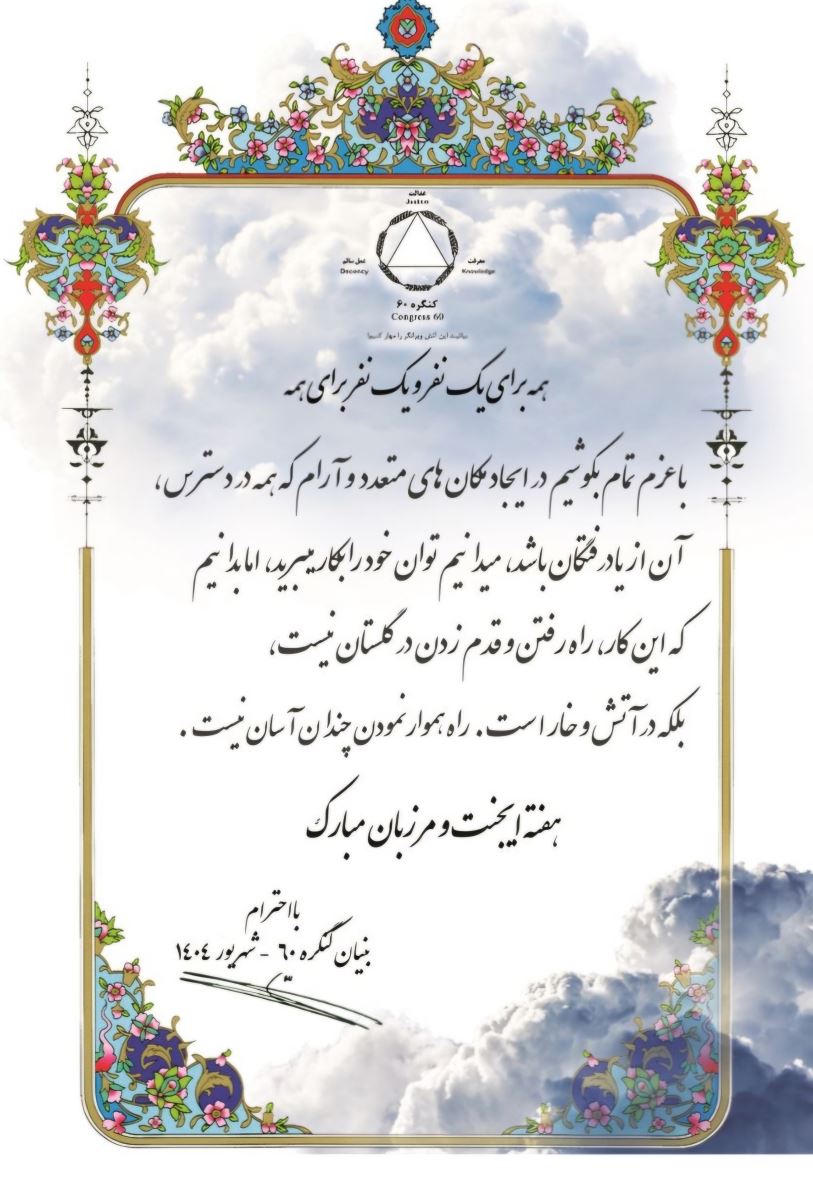 عدالت
Justice
عمل سالم
معرفت
Decency
Knowledge
کنگره ۶۰
Congress 60
بیائید این آتش ویرانگر را مهار کنیم!
همه برای یک نفر و یک نفر برای همه
با عزم تمام بکوشیم در ایجاد مکان های متعدد و آرام که همه در دسترس،
آن از یاد رفتگان باشد، میدانیم توان خود را بکار میبرید، اما بدانیم
که این کار، راه رفتن و قدم زدن در گلستان نیست،
بلکه در آتش و خار است. راه هموار نمودن چندان آسان نیست.
هفته ایجنت و مرزبان مبارک
با احترام
بنیان کنگره ۶۰ - شهریور ۱٤۰٤